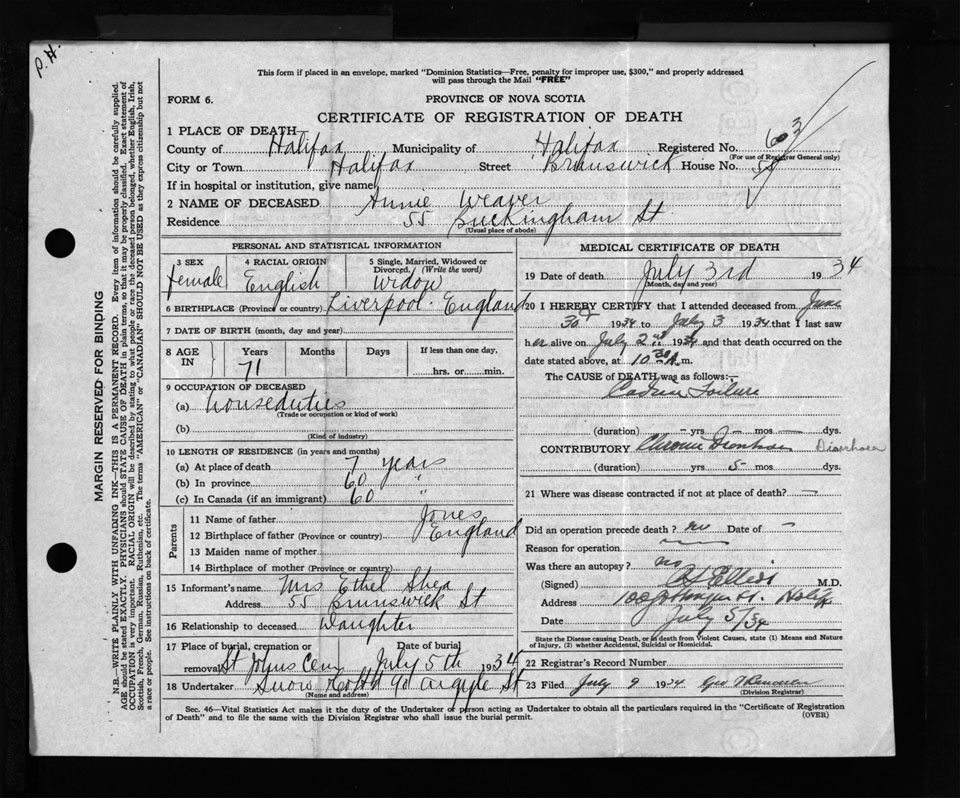 P.H.
This form if placed in an envelope, marked "Dominion Statistics—Free, penalty for improper use, $300," and properly addressed
will pass through the Mail "FREE"
FORM 6.
PROVINCE OF NOVA SCOTIA
CERTIFICATE OF REGISTRATION OF DEATH
1 PLACE OF DEATH—
County of Halifax Municipality of Halifax Registered No. 603
(For use of Registrar General only)
City or Town Halifax Street Brunswick House No. 55
If in hospital or institution, give name
2 NAME OF DECEASED Annie Weaver
Residence 55 Buckingham St
(Usual place of abode)
PERSONAL AND STATISTICAL INFORMATION
3 SEX
female
4 RACIAL ORIGIN
English
5 Single, Married, Widowed or
Divorced, (Write the word)
Widow
6 BIRTHPLACE (Province or country) Liverpool. England
7 DATE OF BIRTH (month, day and year)
8 AGE IN Years Months Days If less than one day,
71 hrs. or min.
9 OCCUPATION OF DECEASED
(a) houseduties
(Trade or occupation or kind of work)
(b)
(Kind of industry)
10 LENGTH OF RESIDENCE (in years and months)
(a) At place of death 7 years
(b) In province 60 "
(c) In Canada (if an immigrant) 60 "
Parents
11 Name of father Jones
12 Birthplace of father (Province or country) England
13 Maiden name of mother
14 Birthplace of mother (Province or country)
15 Informant's name Mrs Ethel Shea
Address 55 Brunswick St
16 Relationship to deceased Daughter
17 Place of burial, cremation or Date of burial
removal St Johns Cem July 5th 1934
18 Undertaker Snow & Co Ltd 90 Argyle St
(Name and address)
MEDICAL CERTIFICATE OF DEATH
19 Date of death July 3rd 1934
(Month, day and year)
20 I HEREBY CERTIFY that I attended deceased from June
30th 1934 to July 3 1934 that I last saw
her alive on July 2nd 1934 and that death occurred on the
date stated above, at 10 30 A.m.
The CAUSE of DEATH was as follows:—
Failure
(duration) — yrs — mos — dys.
CONTRIBUTORY Chronic Diarrhoea
(duration) yrs 5 mos dys.
21 Where was disease contracted if not at place of death? —
Did an operation precede death? no Date of —
Reason for operation —
Was there an autopsy? no
(Signed) Ellis M.D.
Address Halifx
Date July 5/34
State the Disease causing Death, or in death from Violent Causes, state (1) Means and Nature
of Injury, (2) whether Accidental, Suicidal or Homicidal.
22 Registrar's Record Number
23 Filed July 9 1934 Geo
(Division Registrar)
Sec. 46—Vital Statistics Act makes it the duty of the Undertaker or person acting as Undertaker to obtain all the particulars required in the "Certificate of Registration
of Death" and to file the same with the Division Registrar who shall issue the burial permit.
(OVER)
MARGIN RESERVED FOR BINDING
N.B.—WRITE PLAINLY WITH UNFADING INK—THIS IS A PERMANENT RECORD. Every item of information should be carefully supplied.
AGE should be stated EXACTLY. PHYSICIANS should STATE CAUSE OF DEATH in plain terms, so that it may be properly classified. Exact statement of
OCCUPATION is very important. RACIAL ORIGIN will be described by stating to what people or race the deceased person belonged, whether English, Irish,
Scottish, French, German, Russian, Ruthenian, etc. The terms "AMERICAN" or "CANADIAN" SHOULD NOT BE USED as they express citizenship but not
a race or people. See instructions on back of certificate.